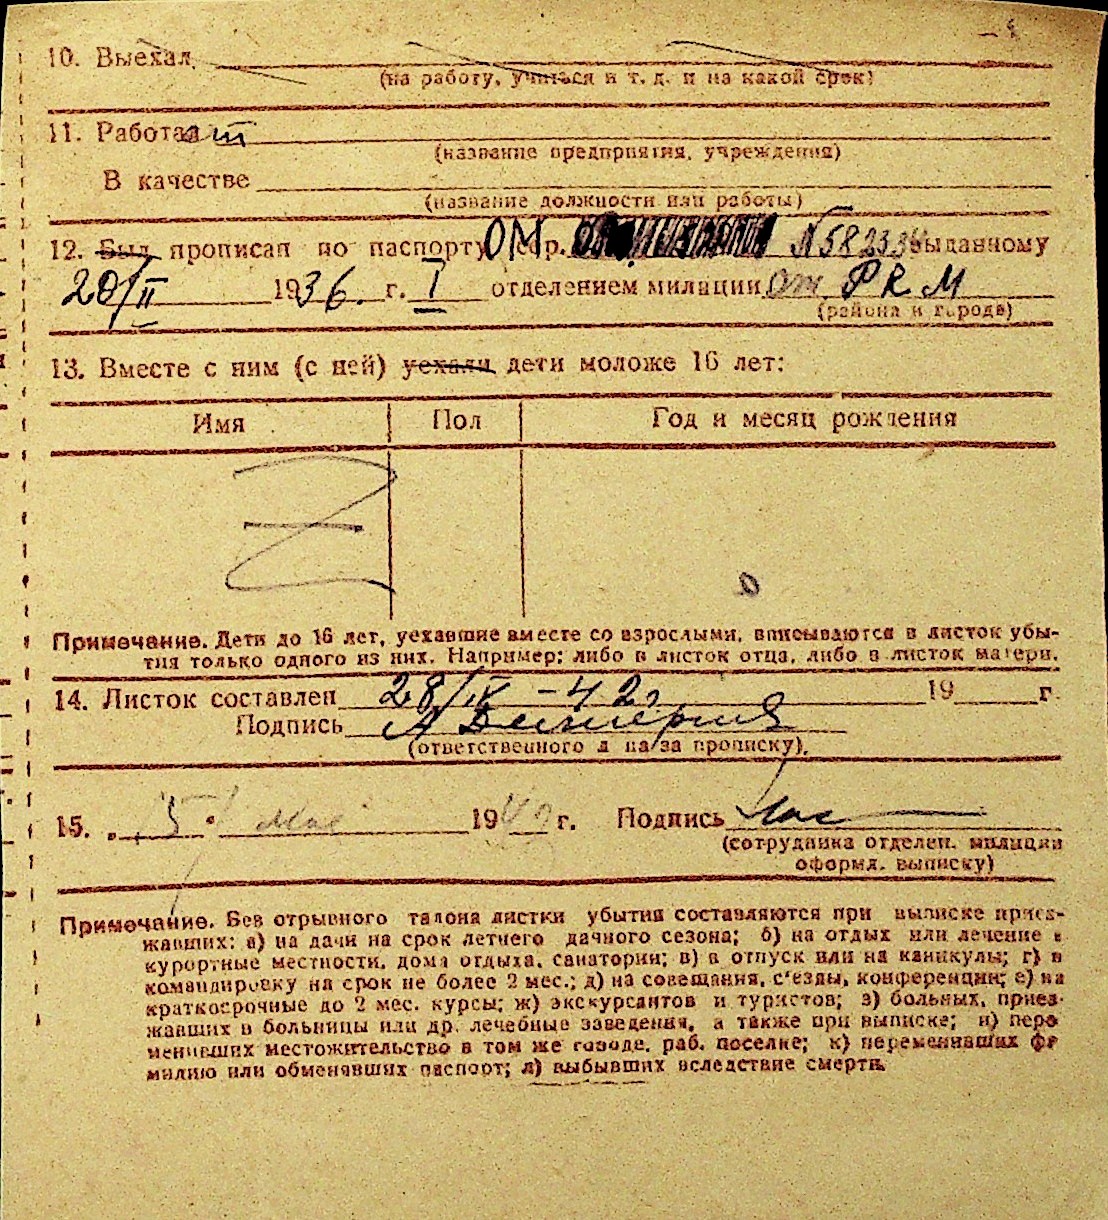 10. Выехал
(на работу, учиться и т. д. и на какой срок)
11. Работал
(название предприятия, учреждения)
В качестве
(название должности или работы)
12. Был прописан по паспорту ОМ сер. № 582334 выданному
20/II 1936. г. I отделением милиции РКМ
(района и города)
13. Вместе с ним (с ней) уехали дети моложе 16 лет:
Имя Пол Год и месяц рождения
Примечание. Дети до 16 лет, уехавшие вместе со взрослыми, вписываются в листок убы-
тия только одного из них. Например: либо в листок отца, либо в листок матери.
14. Листок составлен 28/IV - 42г 19 г.
Подпись
(ответственного л ца за прописку).
15. „ 5 " мая 1942 г. Подпись
(сотрудника отделен. милиции
оформл. выписку)
Примечание. Без отрывного талона листки убытия составляются при выписке приез-
жавших: а) на дачи на срок летнего дачного сезона; б) на отдых или лечение в
курортные местности, дома отдыха, санатории; в) в отпуск или на каникулы; г) в
командировку на срок не более 2 мес.; д) на совещания, с'езды, конференции; е) на
краткосрочные до 2 мес. курсы; ж) экскурсантов и туристов; з) больных, приез-
жавших в больницы или др. лечебные заведения, а также при выписке; и) пере
менивших местожительство в том же городе, раб. поселке; к) переменивших фа
милию или обменявших паспорт; л) выбывших вследствие смерти.